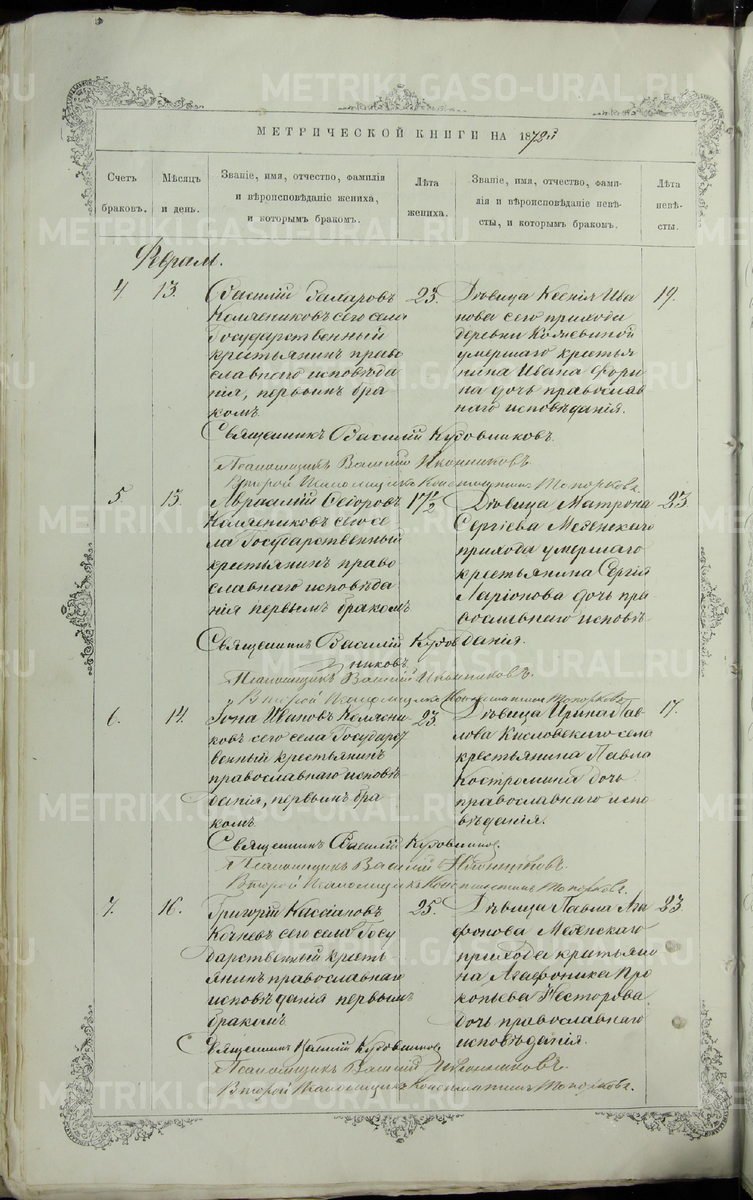 МЕТРИЧЕСКОЙ КНИГИ НА 1872й
Счетъ браковъ.
Мѣсяцъ и день.
Званіе, имя, отчество, фамилія и вѣроисповѣданіе жениха, и которымъ бракомъ.
Лѣта жениха.
Званіе, имя, отчество, фамилія и вѣроисповѣданіе невѣсты, и которымъ бракомъ.
Лѣта невѣсты.
4
13.
Василій
сего села
Государственный
крестьянинъ право
славнаго исповѣда
нія, первымъ бра
комъ
23.
Дѣвица Ксенія Ива
нова сего прихода
деревни
умершаго крестья
нина Ивана
на дочь православ
наго исповѣданія.
19.
Священникъ Василій Кудовниковъ.
Псаломщикъ Василій Иконниковъ
Второй Псаломщикъ Константинъ Топорковъ.
5.
13.
сего се
ла Государственный
крестьянинъ право
славнаго исповѣда
нія первымъ бракомъ
17 1/2
Дѣвица Матрона
Сергіева
прихода умершаго
крестьянина Сергія
Ларіонова дочь пра
вославнаго исповѣ
данія.
23
Священникъ Василій Кудов
никовъ
Псаломщикъ Василій Иконниковъ.
Второй Псаломщикъ Константинъ Топорковъ
6.
14.
Іона Ивановъ
ковъ сего села Государст
венный крестьянинъ
православнаго исповѣ
данія, первымъ бра
комъ
23.
Дѣвица Ирина Пав
лова Кисловскаго села
крестьянина Павла
Костромина дочь
православнаго испо
вѣданія.
17.
Священникъ Василій Кудовниковъ.
Псаломщикъ Василій Иконниковъ.
Второй Псаломщикъ Константинъ Топорковъ.
7.
16.
Григорій Кассіановъ
Кочневъ сего села Госу
дарственный кресть
янинъ православнаго
исповѣданія первымъ
бракомъ
25.
Дѣвица Павла Ага
фонова
прихода крестьяни
на Агафоника Про
копьева Несторова
дочь православнаго
исповѣданія.
23
Священникъ Василій Кудовниковъ
Псаломщикъ Василій Иконниковъ.
Второй Псаломщикъ Константинъ Топорковъ.
METRIKI.GASO-URAL.RU